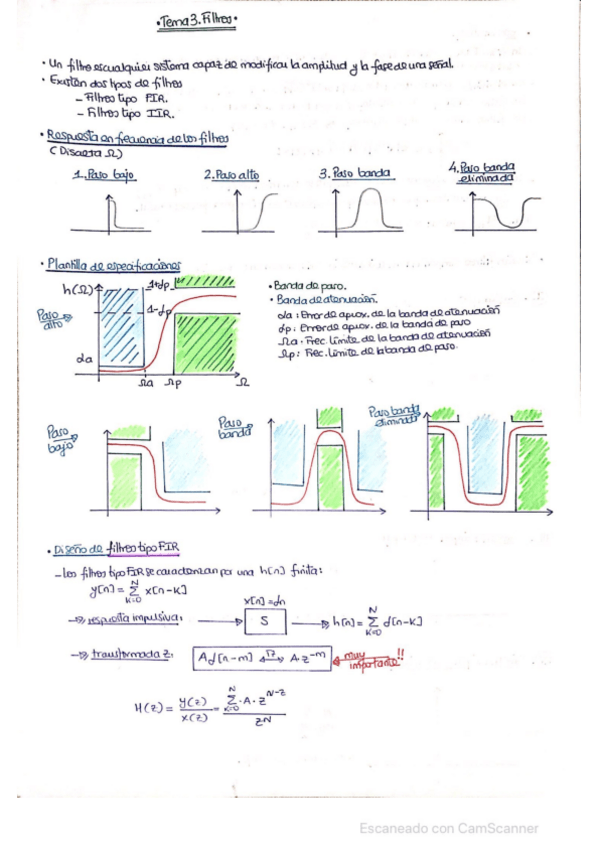 •Tema 3. Filtros•
• Un filtro es cualquier sistema capaz de modificar la amplitud y la fase de una señal.
• Existen dos tipos de filtros
- Filtros tipo FIR.
- Filtros tipo IIR.
• Respuesta en frecuencia de los filtros
(Discreta Ω)
1. Paso bajo
2. Paso alto
3. Paso banda
4. Paso banda
eliminada
• Plantilla de especificaciones
Paso
alto
h(Ω)
1+dp
1-dp
da
Ωa
Ωp
Ω
• Banda de paso.
• Banda de atenuación.
da: Error de aprox. de la banda de atenuación
dp: Error de aprox. de la banda de paso
Ωa: Frec. límite de la banda de atenuación
Ωp: Frec. límite de la banda de paso.
Paso
bajo
Paso
banda
Paso banda
eliminada
• Diseño de filtros tipo FIR
- Los filtros tipo FIR se caracterizan por una h[n] finita:
y[n] = Σ x[n-k]
N
k=0
→ respuesta impulsiva:
x[n]=dn
S
h[n] = Σ d[n-k]
N
k=0
→ transformada z:
Ad[n-m] ↔ A·z^-m
TZ
muy
importante!!
H(z) = y(z)/x(z) = Σ·A·z^N-z / z^N
N
k=0
Escaneado con CamScanner